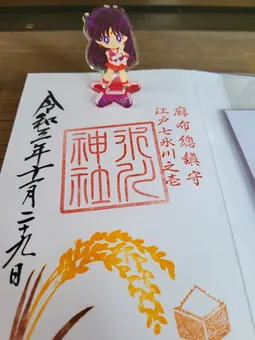 麻布總鎮守
江戸七氷川之壱
氷川神社
令和三年十一月二十九日